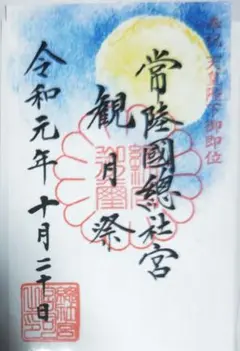 奉祝 天皇陛下御即位
常陸國總社宮
観月祭
令和元年十月二十日